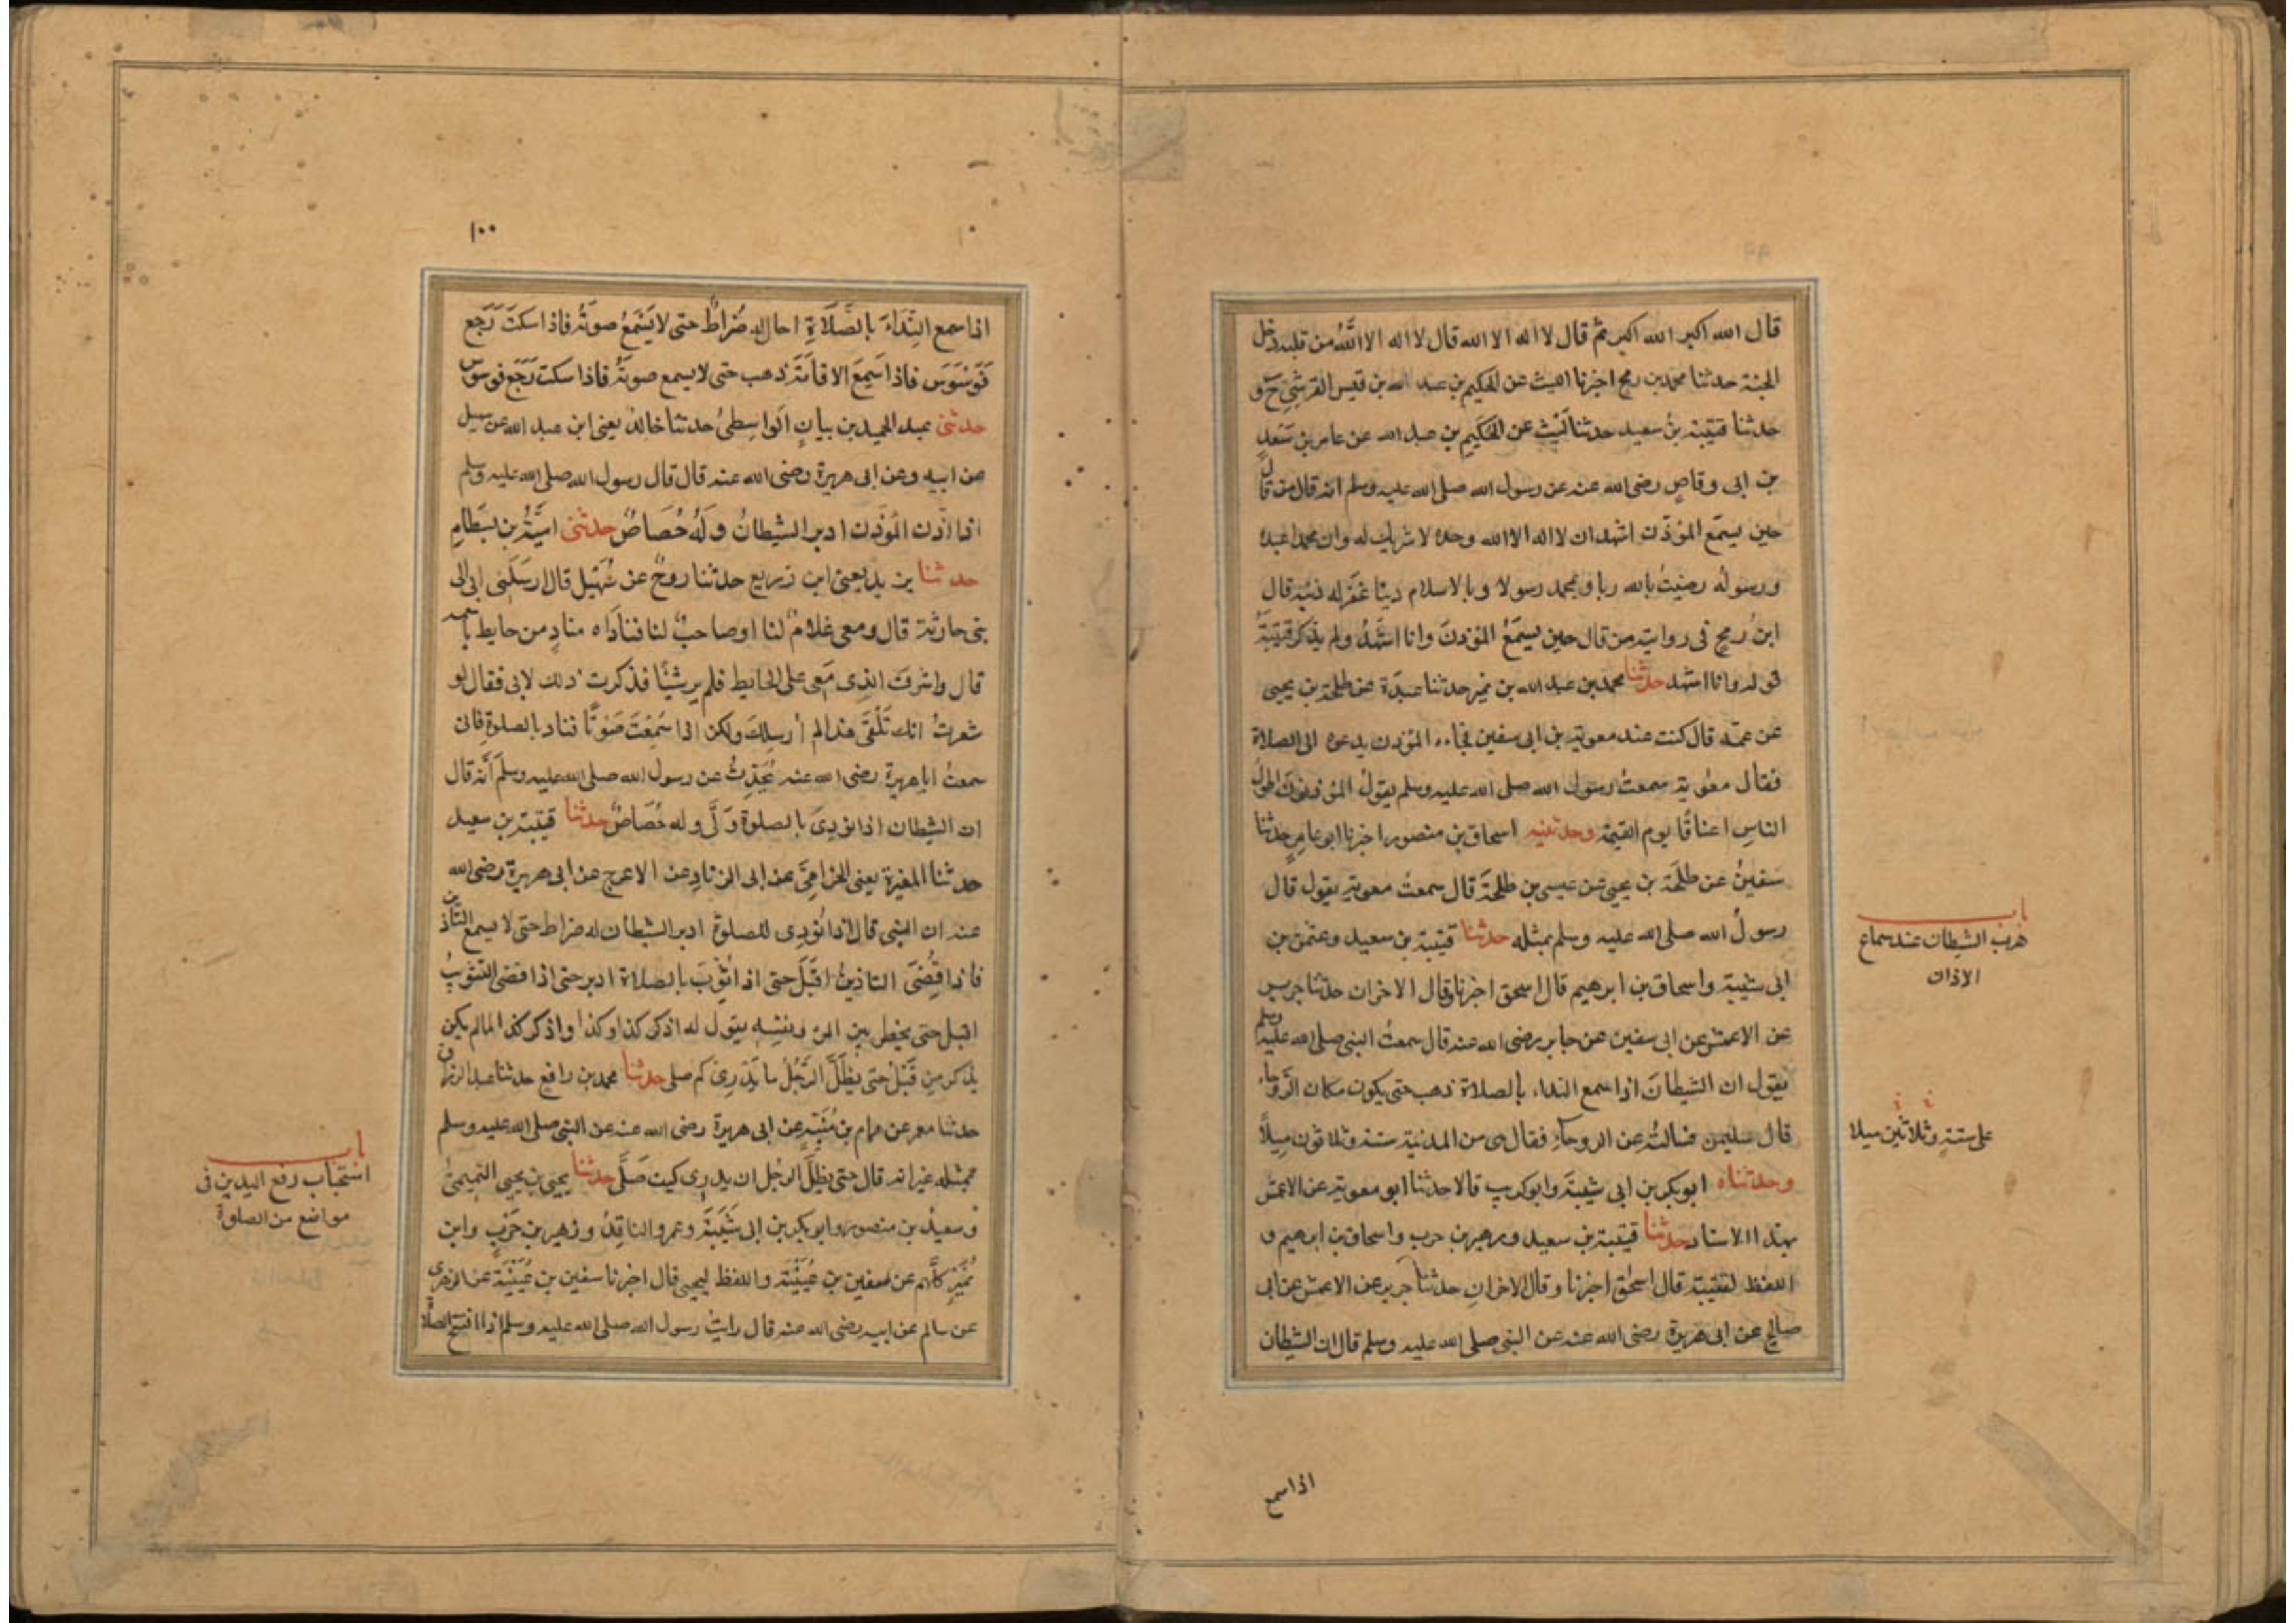 قال الله اكبر الله اكبر ثم قال لا اله الا الله قال لا اله الا اللّٰهُ من قلبه دخل
الجنة حدثنا محمد بن رمح اخبرنا الليث عن الحكيم بن عبد الله بن قيس القرشي ح و
حدثنا قتيبة بنُ سعيد حدثنا لَيْث عن الحُكَيم بن عبد الله عن عامر بن سَعْدِ
بن ابى وقاصٍ رضى الله عنه عن رسول الله صلى الله عليه وسلم انه قال من قال
حين يسمَع المؤذّن اشهد ان لا اله الا الله وحده لا شريك له وان محمدا عبده
ورسولُه رضيتُ بالله ربا وبمحمد رسولا وبالاسلام دينًا غفر له ذنبه قال
ابنُ رمحٍ فى روايته من قال حين يسمَعُ المؤذنَ وانا اشْهَدُ ولم يذكر قتيبَةُ
قوله وانا اشهد حدثنا محمد بن عبد الله بن نمير حدثنا عبدَة عن طلحة بن يحيى
عن عمّه قال كنت عند معوية بن ابى سفين فجاءه المؤذن يدعوه الى الصلاة
فقال معٰوية سمعتُ رسولَ الله صلى الله عليه وسلم يقولُ المؤذنونَ اطولُ
الناسِ اعناقًا يوم القيمة وحدثنيه اسحاق بن منصور اخبرنا ابو عامرٍ حدثنا
سفينُ عن طلحَة بن يحيى عن عيسى بن طلحَة قال سمعتُ معوية يقول قال
رسولُ الله صلى الله عليه وسلم بمثله حدثنا قتيبة بن سعيد وعثمن بن
ابى شيبة واسحاق بن ابرهيم قال اسحق اخبرنا وقال الاخران حدثنا جرير
عن الاعمش عن ابى سفين عن جابر رضى الله عنه قال سمعتُ النبى صلى الله عليه وسلم
يقول ان الشيطانَ اذا سمع النداء بالصلاة ذهب حتى يكون مكان الرَّوحاء
قال سليمن فسالتُه عن الروحاءِ فقال هى من المدينة ستة وثلاثون مِيلاً
وحدثناه ابو بكر بن ابى شيبَة وابو كريب قالا حدثنا ابو معوية عن الاعمش
بهذا الاسناد حدثنا قتيبة بن سعيد وزهير بن حرب واسحاق بن ابرهيم و
اللفظ لقتيبة قال اسحٰق اخبرنا وقال الاخرانِ حدثنا جرير عن الاعمش عن ابى
صالحٍ عن ابى هريرة رضى الله عنه عن النبى صلى الله عليه وسلم قال ان الشيطان
باب
هرب الشيطان عند سماع
الاذان
على ستةٍ وثلاثين ميلا
اذا سمع
١٠٠
اذا سمع النِّداءَ بالصَّلَاةِ احال له ضُراطٌ حتى لا يَسْمَعُ صوتَهُ فاذا سكتَ رَجَع
فَوَسْوَسَ فاذا سَمِعَ الاقامَةَ ذهب حتى لا يسمع صوتَهُ فاذا سكت رَجَع فوسوس
حدثنى عبد الحميد بن بيانٍ الواسِطىُ حدثنا خالدٌ يعنى ابن عبد الله عن سهيل
عن ابيه وعن ابى هريرة رضى الله عنه قال قال رسول الله صلى الله عليه وسلم
اذا اذّن المُؤذن ادبر الشيطانُ وَلَهُ حُصَاصٌ حدثنى اميَّةُ بن بسطامٍ
حدثنا يزيد يعنى ابن زريع حدثنا روحٌ عن سُهَيل قال ارسَلَنى ابى الى
بنى حارثة قال ومعى غلامٌ لنا اوصاحبٌ لنا فناداه منادٍ من حايط باسمه
قال واشرفَ الذى مَعى على الحايط فلم ير شيئًا فذكرت ذلك لابى فقال لو
شعرتُ انك تَلْقَى هذا لم أُرسِلكَ ولكن اذا سَمِعْتَ صَوْتًا فناد بالصلوة فانى
سمعتُ ابا هريرة رضى الله عنه يُحَدِّثُ عن رسول الله صلى الله عليه وسلم أنّه قال
ان الشيطان اذا نودِىَ بالصلوة وَلَّى وله حُصَاصٌ حدثنا قتيبة بن سعيد
حدثنا المغيرة يعنى الحزامىَّ عن ابى الزنادِ عن الاعرج عن ابى هريرة رضى الله
عنه ان النبى قال اذا نُودِى للصلوة ادبر الشيطان له ضراط حتى لا يسمع التاذين
فاذا قُضِىَ التاذينُ اقبَلَ حتى اذا ثُوِّبَ بالصلاة ادبر حتى اذا قضى التثويبُ
اقبل حتى يخطر بين المرء ونفسِه يقول له اذكر كذا وكذا واذكر كذا لما لم يكن
يذكر مِن قَبْلُ حتى يظَلَّ الرَّجُلُ ما يَدْرِى كم صلى حدثنا محمد بن رافع حدثنا عبد الرزاق
حدثنا معمر عن همام بن مُنَبِّه عن ابى هريرة رضى الله عنه عن النبى صلى الله عليه وسلم
بمثله غير انه قال حتى يظلَّ الرجُل ان يدرِى كيف صَلَّى حدثنا يحيى بن يحيى التميمىُّ
وسعيدُ بن منصور وابو بكر بن ابى شَيْبَةَ وعمرو الناقِدُ وزهير بن حَرْبٍ وابن
نُمَيْرٍ كلُّهم عن سفين بن عُيَيْنَة واللفظ ليحيى قال اخبرنا سفين بن عُيَيْنَة عن الزهرى
عن سالم عن ابيه رضى الله عنه قال رايتُ رسول الله صلى الله عليه وسلم اذا افتتح الصلاة
باب
استحباب رفع اليدين فى
مواضع من الصلوة